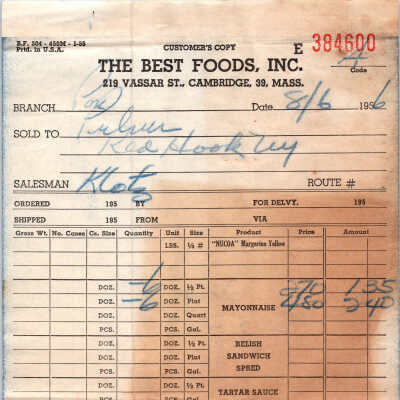 B.F. 504 - 450M - 1-55
Prtd. in U.S.A.
CUSTOMER'S COPY
E 384600
THE BEST FOODS, INC.
Code
219 VASSAR ST., CAMBRIDGE, 39, MASS.
BRANCH Date 8/6 1956
SOLD TO
Red Hook NY
SALESMAN Klotz ROUTE #
ORDERED 195 BY FOR DELVY. 195
SHIPPED 195 FROM VIA
Gross Wt. No. Cases Cs. Size Quantity Unit Size Product Price Amount
LBS. ½ # "NUCOA" Margarine Yellow
DOZ. 6 DOZ. ½ Pt. 270 1.35
DOZ. 6 DOZ. Pint MAYONNAISE 480 240
DOZ. DOZ. Quart
PCS. PCS. Gal.
DOZ. DOZ. ½ Pt. RELISH
DOZ. DOZ. Pint SANDWICH
PCS. PCS. Gal. SPRED
DOZ. DOZ. ½ Pt.
DOZ. DOZ. Pint TARTAR SAUCE
PCS. PCS. Gal.